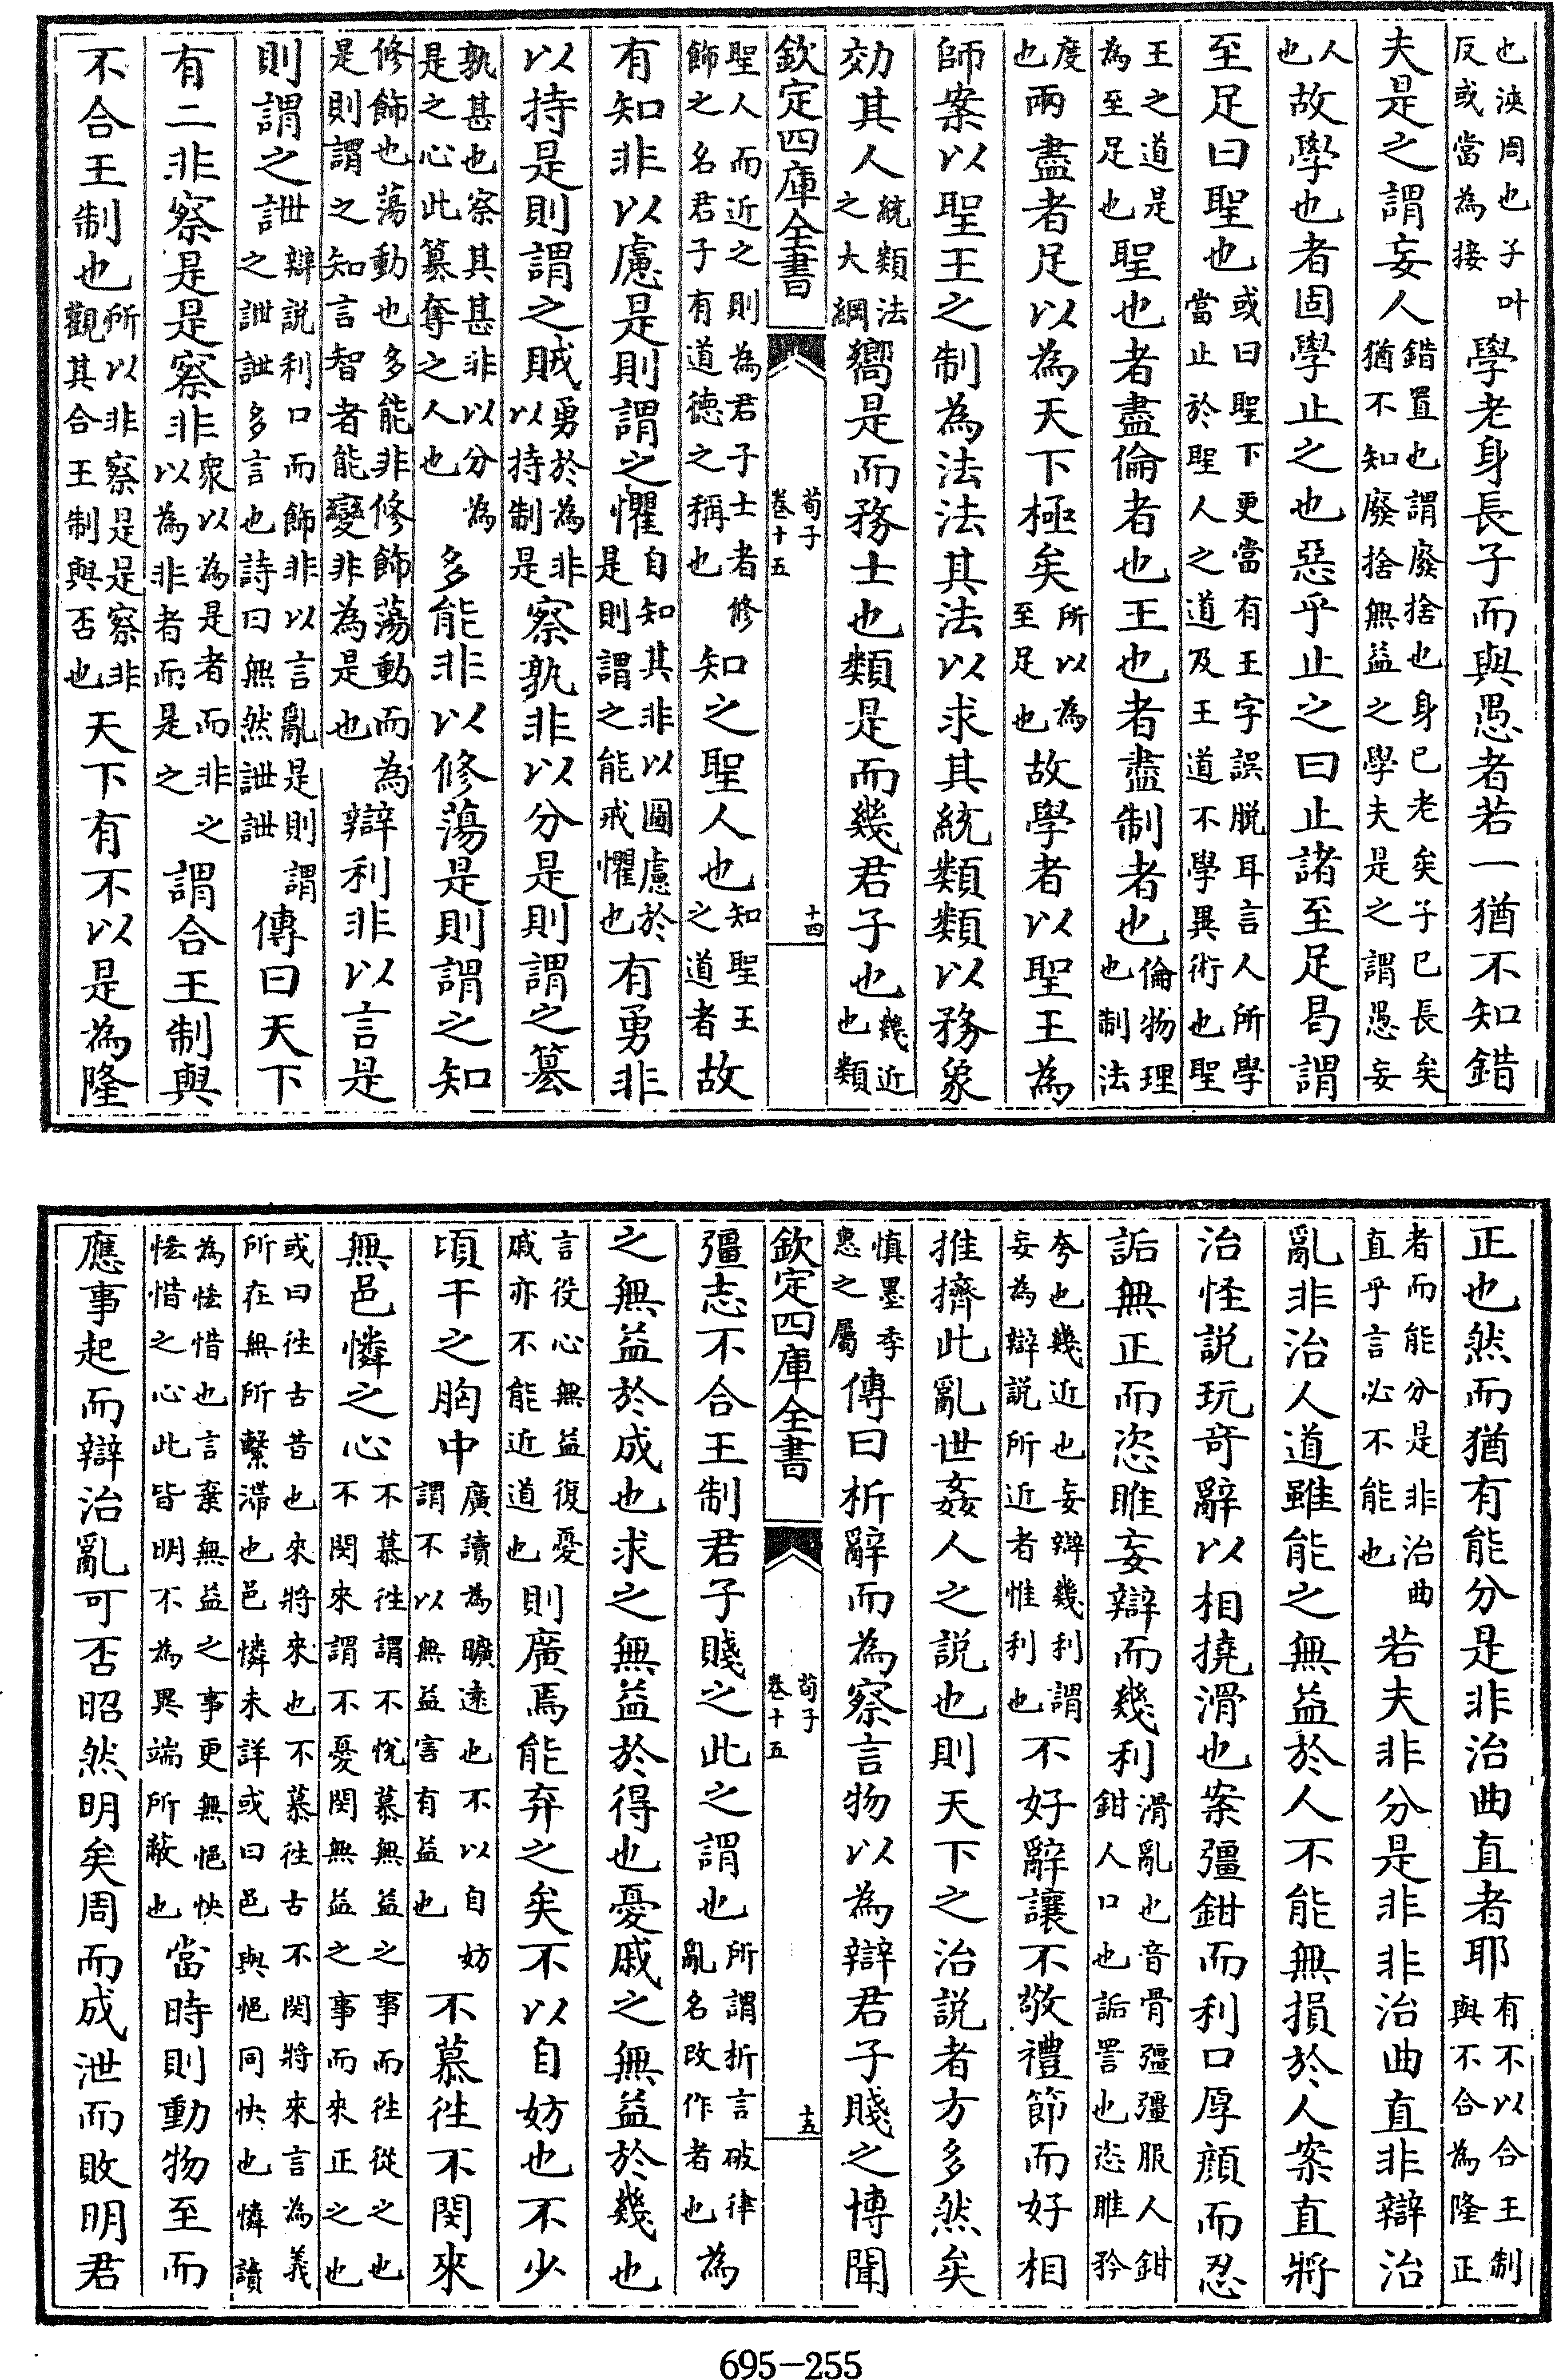 也浹周也子叶
反或當為接學老身長子而與愚者若一猶不知錯
夫是之謂妄人錯置也謂廢捨也身已老矣子已長矣
猶不知廢捨無益之學夫是之謂愚妄
人也故學也者固學止之也惡乎止之曰止諸至足曷謂
至足曰聖也或曰聖下更當有王字誤脱耳言人所學
當止於聖人之道及王道不學異術也聖
王之道是
為至足也聖也者盡倫者也王也者盡制者也倫物理
也制法
度
也兩盡者足以為天下極矣所以為
至足也故學者以聖王為
師案以聖王之制為法法其法以求其統類類以務象
効其人統類法
之大綱嚮是而務士也類是而幾君子也幾近
也類
欽定四庫全書
荀子
卷十五
十四
聖人而近之則為君子士者修
飾之名君子有道德之稱也知之聖人也知聖王
之道者故
有知非以慮是則謂之懼自知其非以圖慮於
是則謂之能戒懼也有勇非
以持是則謂之賊勇於為非
以持制是察孰非以分是則謂之篡
孰甚也察其甚非以分為
是之心此篡奪之人也多能非以修蕩是則謂之知
修飾也蕩動也多能非修飾蕩動而為
是則謂之知言智者能變非為是也辯利非以言是
則謂之詍辯説利口而飾非以言亂是則謂
之詍詍多言也詩曰無然詍詍傳曰天下
有二非察是是察非衆以為是者而非之
以為非者而是之謂合王制與
不合王制也所以非察是是察非
觀其合王制與否也天下有不以是為隆
正也然而猶有能分是非治曲直者耶有不以合王制
與不合為隆正
者而能分是非治曲
直乎言必不能也若夫非分是非非治曲直非辯治
亂非治人道雖能之無益於人不能無損於人案直將
治怪説玩竒辭以相撓滑也案彊鉗而利口厚顔而忍
詬無正而恣睢妄辯而幾利滑亂也音骨彊彊服人鉗
鉗人口也詬詈也恣睢矜
夸也幾近也妄辯幾利謂
妄為辯説所近者惟利也不好辭讓不敬禮節而好相
推擠此亂世姦人之説也則天下之治説者方多然矣
慎墨季
惠之屬傳曰析辭而為察言物以為辯君子賤之博聞
欽定四庫全書
荀子
卷十五
十五
彊志不合王制君子賤之此之謂也所謂析言破律
亂名改作者也為
之無益於成也求之無益於得也憂戚之無益於幾也
言役心無益復憂
戚亦不能近道也則廣焉能弃之矣不以自妨也不少
頃干之胸中廣讀為曠逺也不以自妨
謂不以無益害有益也不慕徃不閔來
無邑憐之心不慕徃謂不悅慕無益之事而徃從之也
不閔來謂不憂閔無益之事而來正之也
或曰徃古昔也來將來也不慕徃古不閔將來言為義
所在無所繫滯也邑憐未詳或曰邑與悒同怏也憐讀
為恡惜也言棄無益之事更無悒怏
恡惜之心此皆明不為異端所蔽也當時則動物至而
應事起而辯治亂可否昭然明矣周而成泄而敗明君
695-255